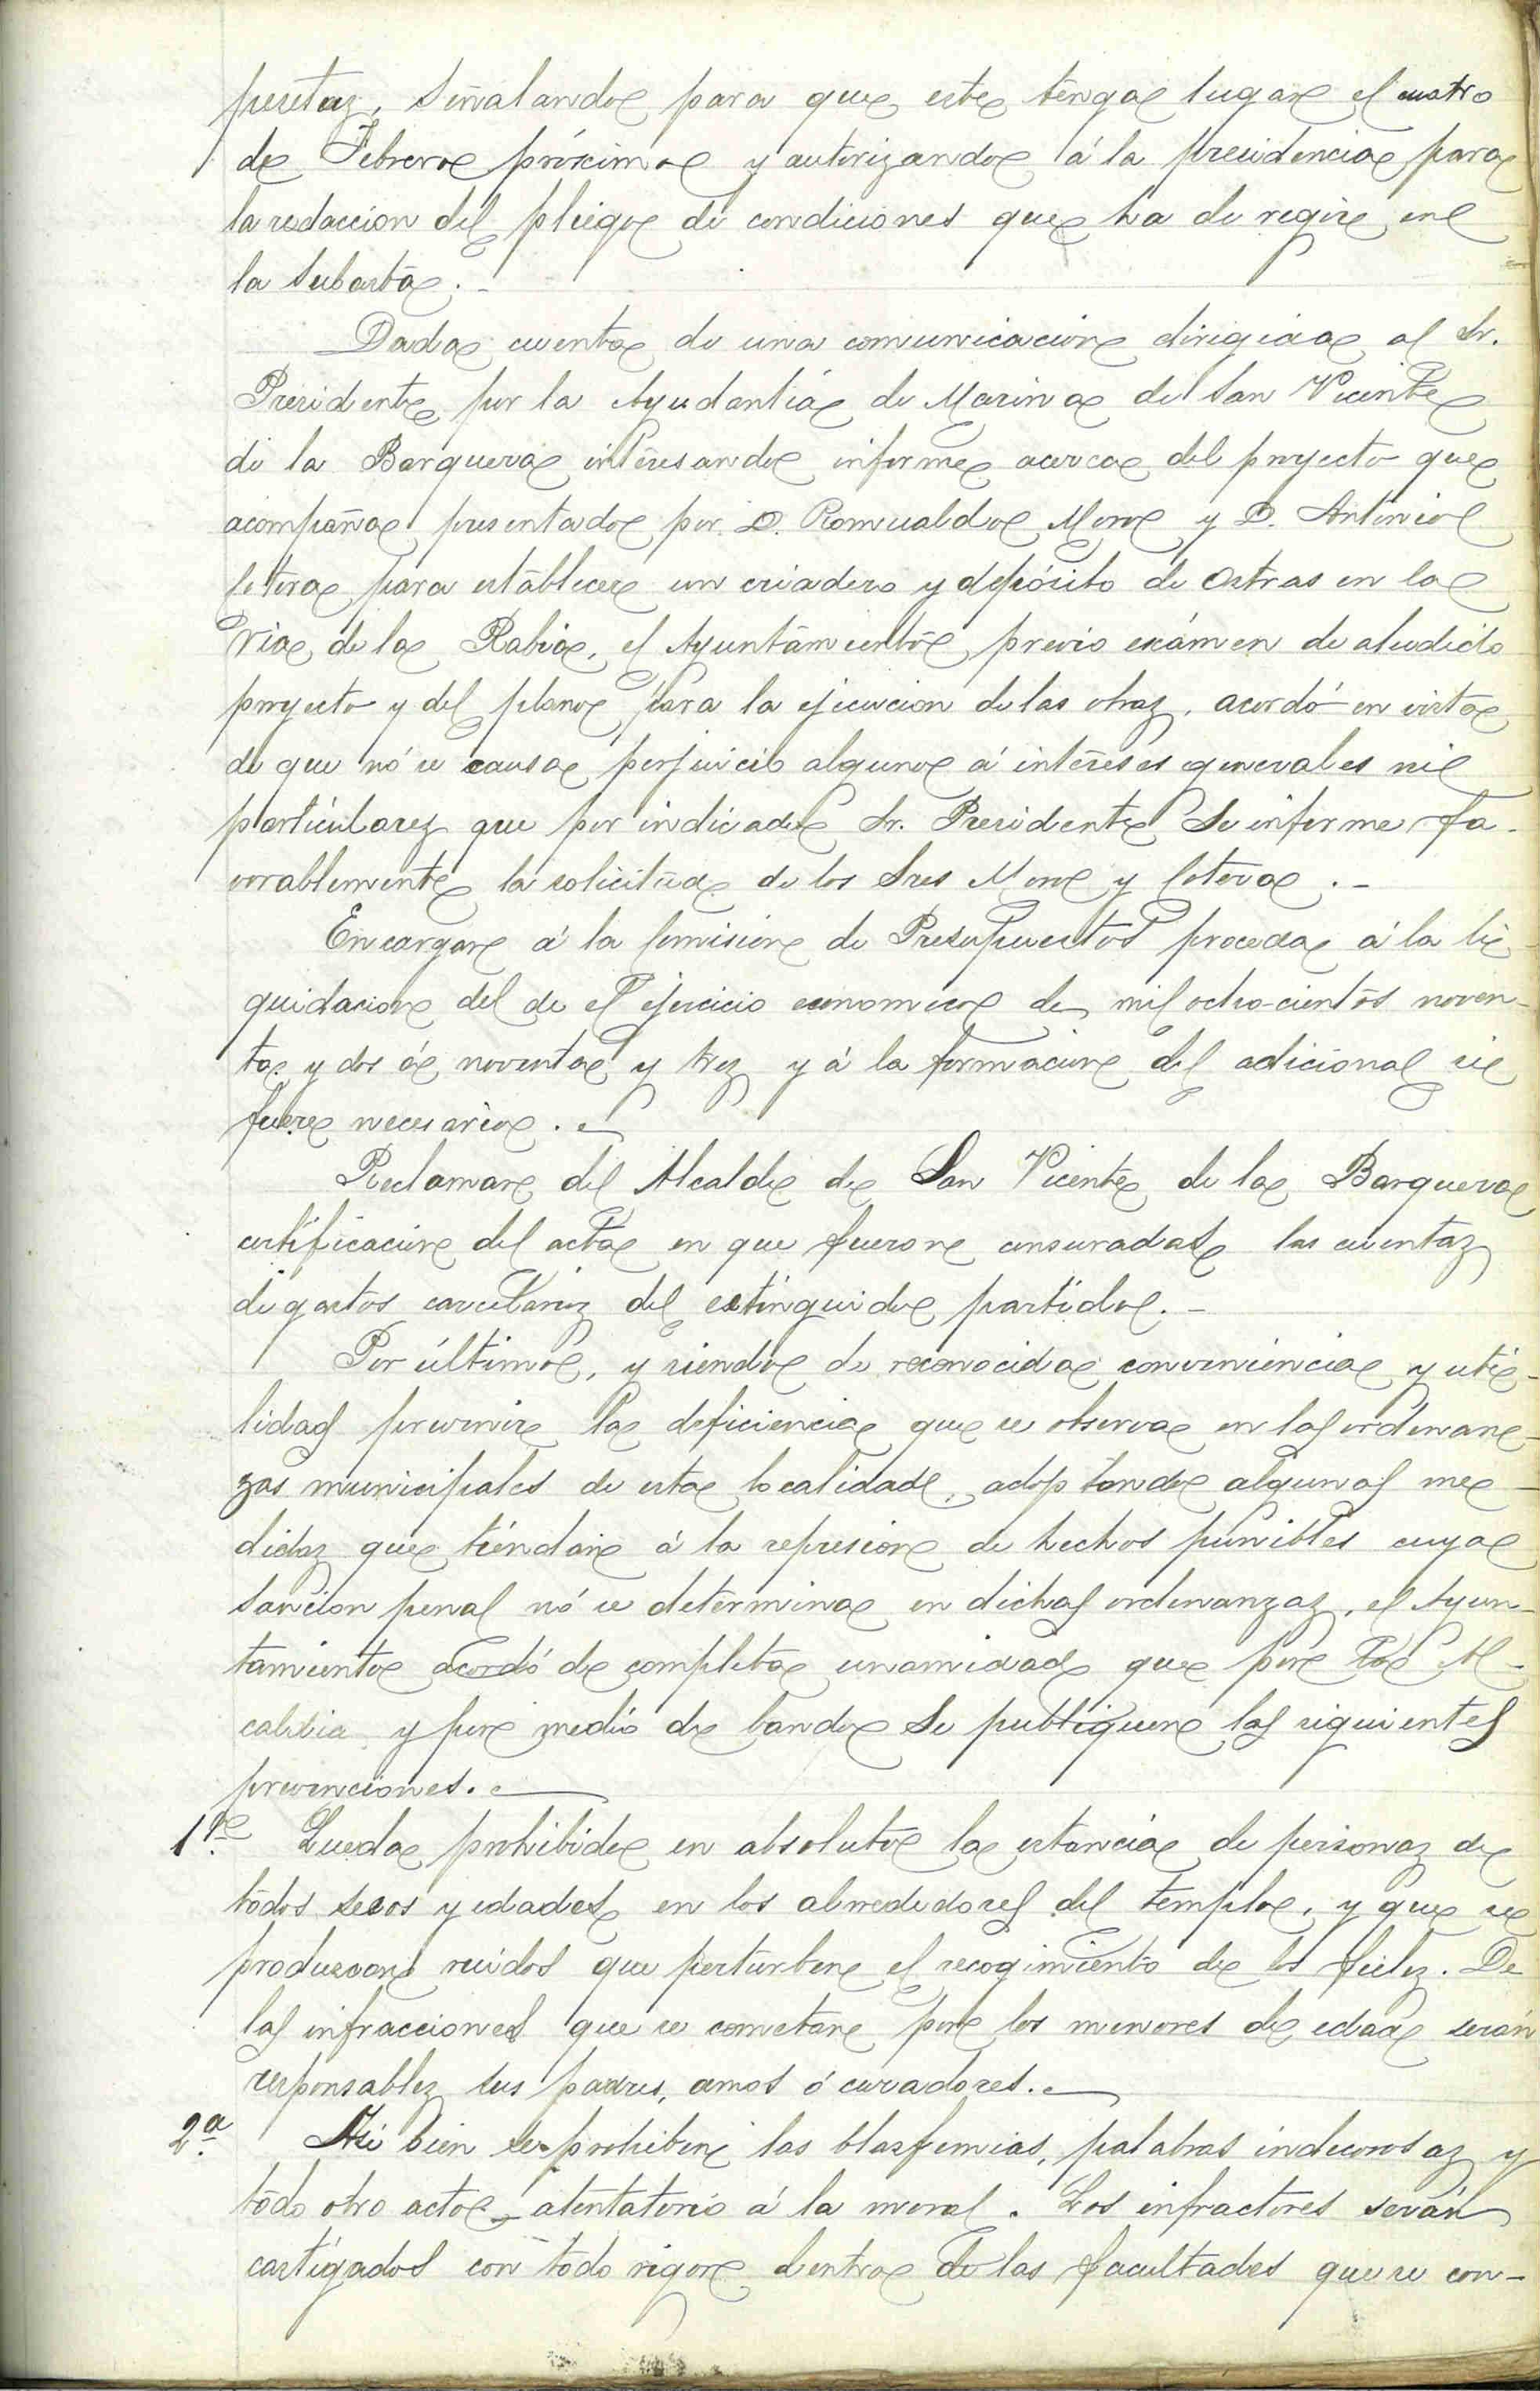 pesetas, señalando para que este tenga lugar el cuatro
de Febrero próximo y autorizando á la presidencia para
la redaccion del pliego de condiciones que ha de regir en
la subasta.-
Dada cuenta de una comunicacion dirigida al Sr.
Presidente por la Ayudantía de Marina de San Vicente
de la Barquera interesando informe acerca del proyecto que
acompaña presentado por D. Romualdo Moro y D. Antonio
Cotera para establecer un criadero y depósito de Ostras en la
ria de la Rabia, el Ayuntamiento previo exámen de aludido
proyecto y del plano para la ejecucion de las obras, acordó en vista
de que nó se causa perjuicio alguno á intereses generales ni
particulares que por indicado Sr. Presidente Se informe fa-
vorablemente la solicitud de los Sres Moro y Cotera.-
Encargar á la Comision de Presupuestos proceda á la li-
quidacion del de el ejercicio economico de mil ocho-cientos noven-
ta y dos á noventa y tres y á la formacion del adicional si
fuere necesario.-
Reclamar del Alcalde de San Vicente de la Barquera
certificacion del acta en que fueron censuradas las cuentas
de gastos carcelarios del extinguido partido.-
Por último, y siendo de reconocida conveniencia y uti-
lidad prevenir la deficiencia que se observa en las ordenan-
zas municipales de esta localidad, adoptando algunas me-
didas que tiendan á la represion de hechos punibles cuya
sancion penal nó se determina en dichas ordenanzas, el Ayun-
tamiento acordó de completa unamidad que por la Al-
caldia y por medio de bando Se publiquen las siguientes
prevenciones.-
1ª Queda prohibido en absoluto la estancia de personas de
todos secsos y edades en los alrededores del templo, y que se
produzcan ruidos que perturben el recogimiento de los fieles. De
las infracciones que se cometan por los menores de edad serán
responsables sus padres, amos ó curadores.-
2ª Asi bien se prohiben las blasfemias, palabras indecorosas y
todo otro acto atentatorio á la moral. Los infractores serán
castigados con todo rigor dentro de las facultades que se con-